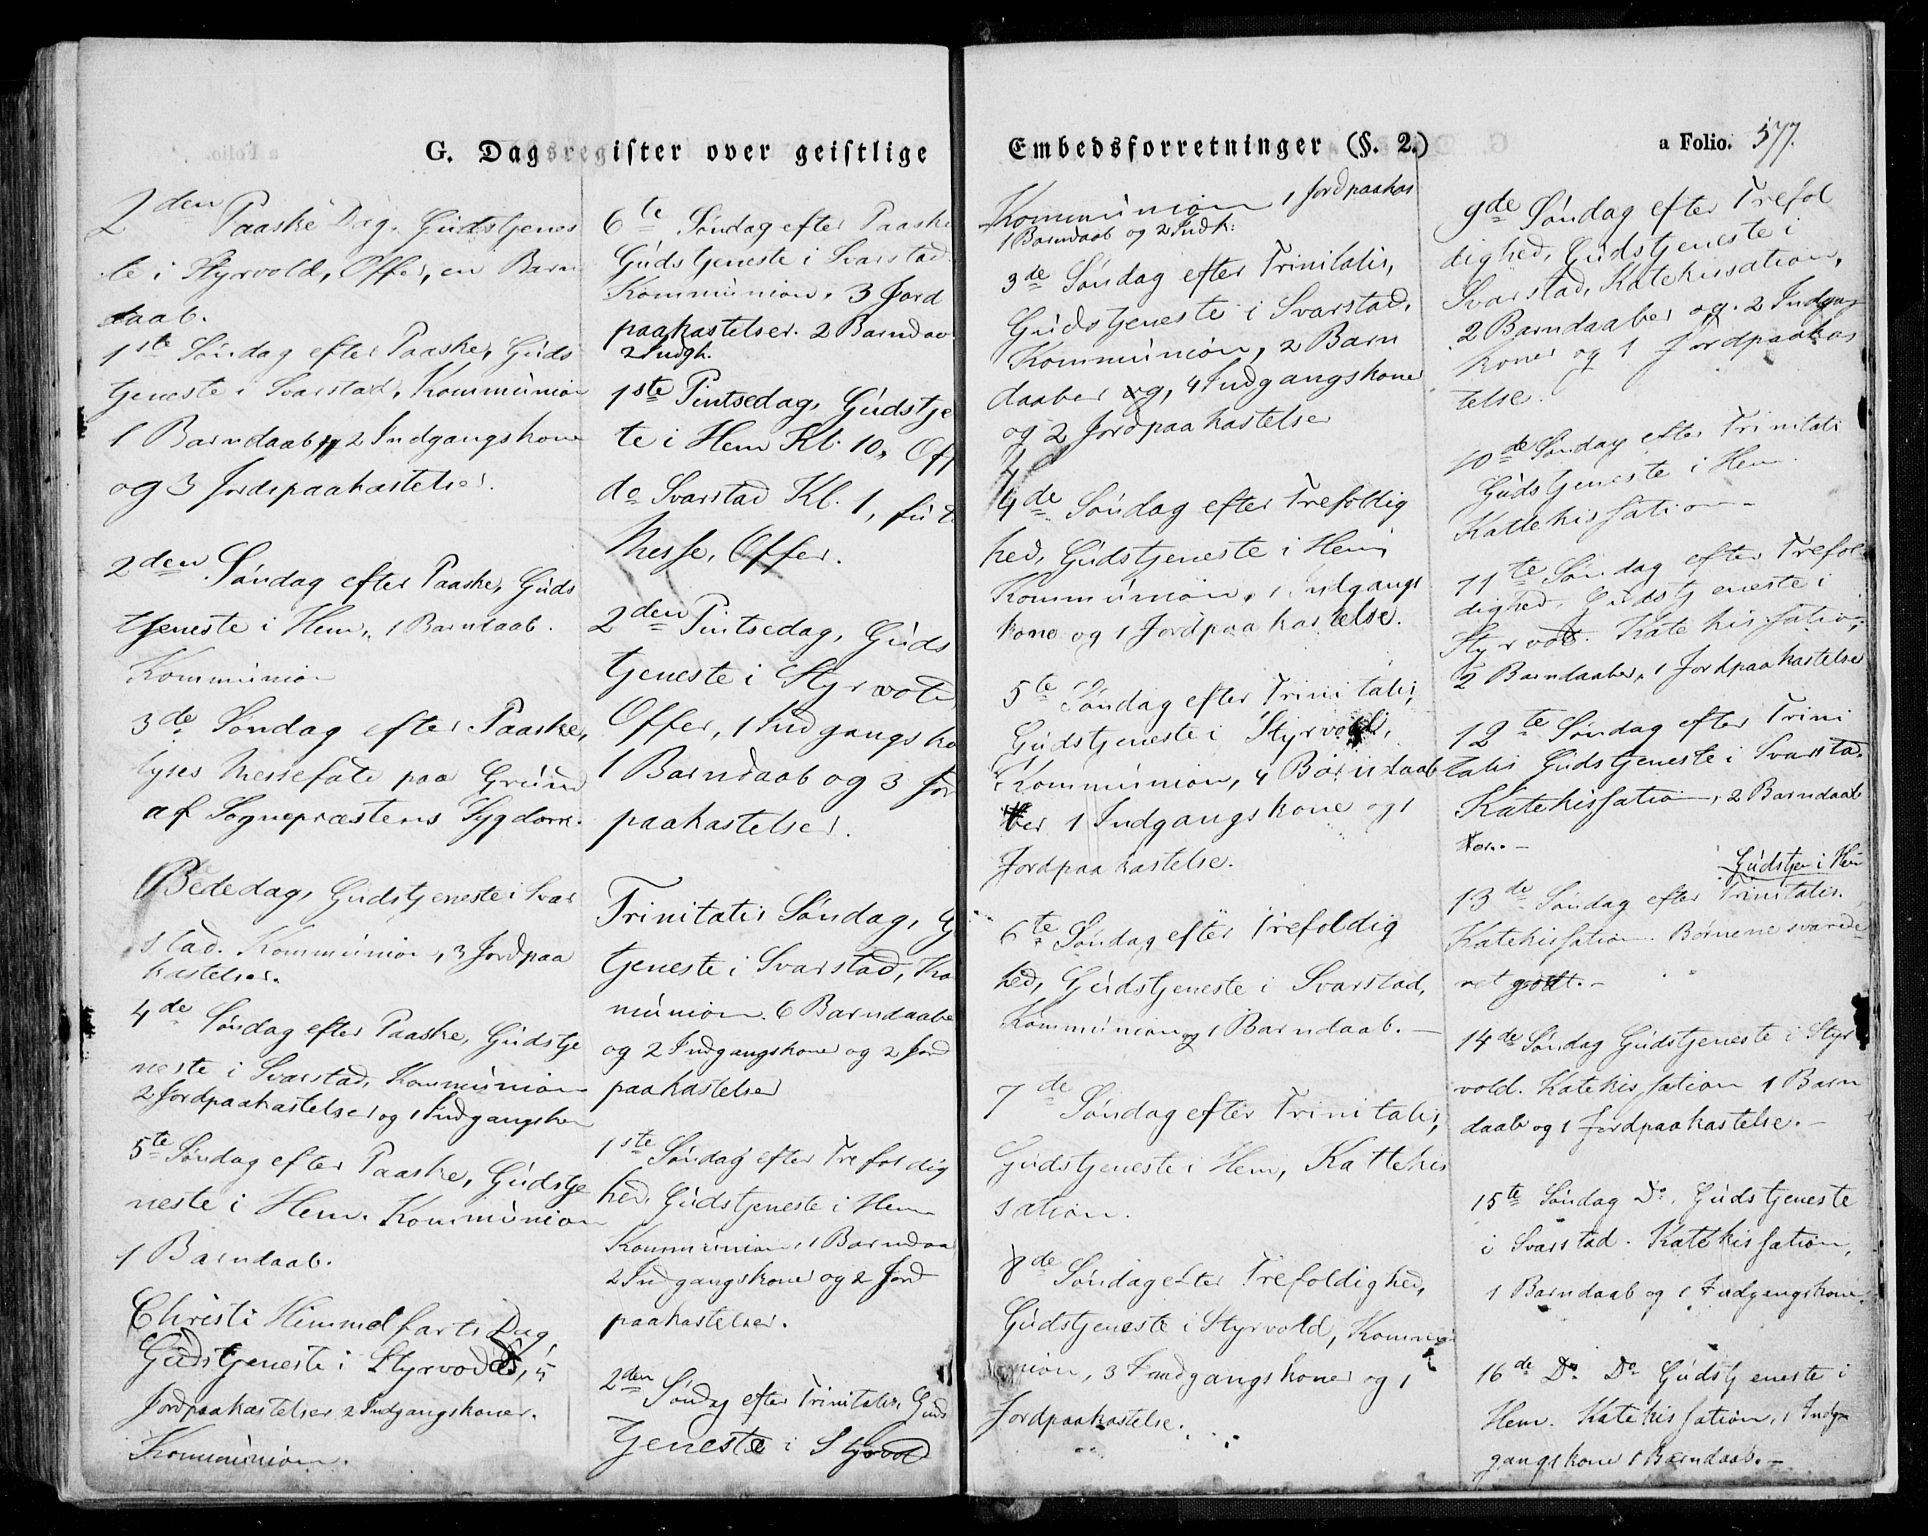 G. Dagsregister over geistlige
2den Paaske Dag. Gudstjenes
te i Styrvold, Offer, en Barn
daab.
1ste Søndag efter Paaske, Guds
tjeneste i Svarstad, Kommunion
1 Barndaab, 2 Indgangskone
og 3 Jordspaakastelser.
2den Søndag efter Paaske, Guds
tjeneste i Hem, 1 Barndaab.
Kommunion
3de Søndag efter Paaske,
lyses Messefald paa Grund
af Sognepræstens Sygdom.
Bededag, Gudstjeneste i Svar
stad. Kommunion, 3 Jordpaa
kastelser.
4de Søndag efter Paaske, Gudstje
neste i Svarstad, Kommunion
2 Jordpaakastelser og 1 Indgangskon
5te Søndag efter Paaske, Gudstje
neste i Hem. Kommunion
1 Barndaab.
Christi Himmelfarts Dag,
Gudstjeneste i Styrvold, 5
Jordpaakastelser 2 Indgangskoner.
Kommunion.
6te Søndag efter Paaske
Gudstjeneste i Svarstad.
Kommunion, 3 Jord
paakastelser. 2 Barndaa
2 Indgk.
1ste Pintsedag, Gudstje
te i Hem Kl. 10, Off
do Svarstad Kl. 1,
Messe, Offer.
2den Pintsedag, Guds
tjeneste i Styrvold
Offer, 1 Indgangsko
1 Barndaab og 3 Jor
paakastelser.
Trinitatis Søndag, G
tjeneste i Svarstad, Ko
munion. 6 Barndaabe
og 2 Indgangskoner og 2 Jord
paakastelser
1ste Søndag efter Trefoldig
hed, Gudstjeneste i Hem
Kommunion, 1 Barndaa
2 Indgangskoner og 2 Jord
paakastelser.
2den Søndag efter Trinitatis, Guds
tjeneste i Styrvold
Embedsforretninger (§. 2.)
a Folio. 577.
Kommunion 1 Jordpaakas
1 Barndaab og 2 Indk:
3de Søndag efter Trinitatis,
Gudstjeneste i Svarstad,
Kommunion, 2 Barn
daaber og, 4 Indgangskone
og 2 Jordpaakastelser
4de Søndag efter Trefoldig
hed, Gudstjeneste i Hem
Kommunion, 1 Indgangs
kone og 1 Jordpaakastelse.
5te Søndag efter Trinitatis,
Gudstjeneste i Styrvold,
Kommunion, 4 Barndaab
ber 1 Indgangskone og 1
Jordpaakastelse.
6te Søndag efter Trefoldig
hed, Gudstjeneste i Svarstad,
Kommunion og 1 Barndaab. —
7de Søndag efter Trinitatis,
Gudstjeneste i Hem, Kattekis
sation.
8de Søndag efter Trefoldighed,
Gudstjeneste i Styrvold, Kommu
nion, 3 Indgangskoner og 1
Jordpaakastelse.
9de Søndag efter Trefol
dighed, Gudstjeneste i
Svarstad, Katekissation,
2 Barndaaber og 2 Indgangs
koner og 1 Jordpaakas
telse.
10de Søndag efter Trinitati
Gudstjeneste i Hem.
Kattekissation —
11te Søndag efter Trefol
dighed, Gudstjeneste i
Styrvold. Katekissation,
2 Barndaaber, 1 Jordpaakastelse
12te Søndag efter Trini
tatis Gudstjeneste i Svarstad.
Katekissation, 2 Barndaab
ber. —
Gudstjen i Hem
13de Søndag efter Trinitatis.
Katekissation. Børnene svarede
ret godt. —
14de Søndag Gudstjeneste i Styr
vold. Katekissation 1 Barn
daab og 1 Jordpaakastelse. —
15te Søndag Do. Gudstjeneste
i Svarstad. Katekissation,
1 Barndaab og 1 Indgangskone.
16de Do Do Gudstjeneste i
Hem. Katekissation, 1 Indg
gangskone 1 Barndaab. —